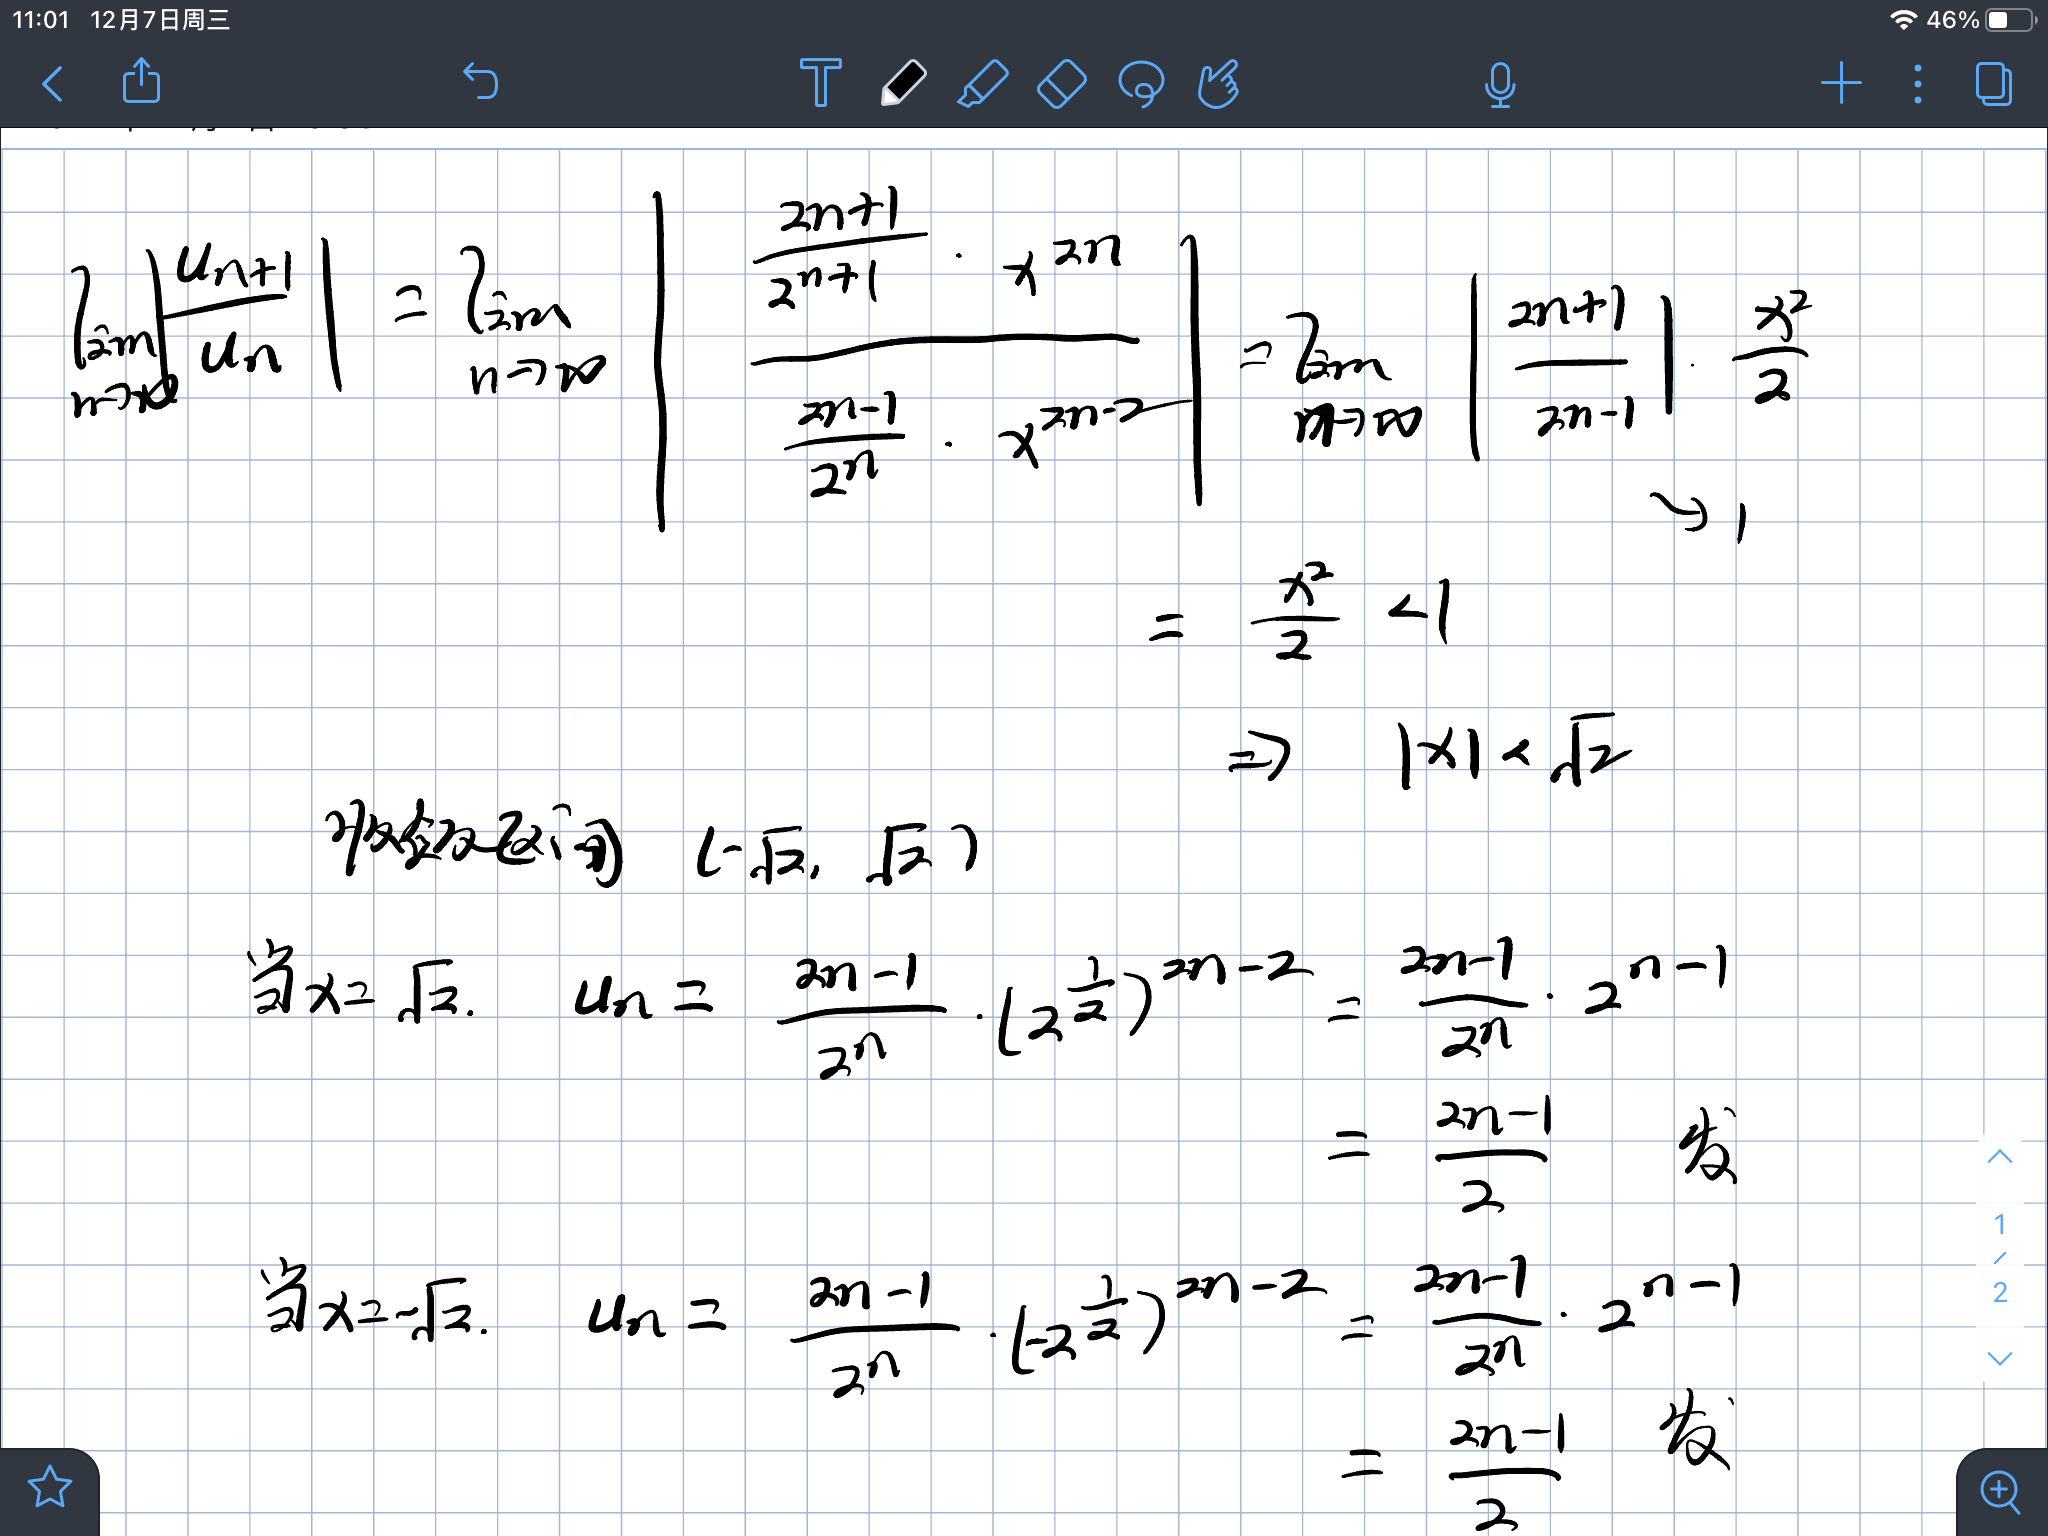 11:01 12月7日周三 46%
lim n→∞ |u_{n+1}/u_n| = lim n→∞ |((2n+1)/2^{n+1} · x^{2n}) / ((2n-1)/2^n · x^{2n-2})| = lim n→∞ |(2n+1)/(2n-1)| · x²/2
↘ 1
= x²/2 <1
⇒ |x| < √2
收敛区间 (-√2, √2)
当x=√2. u_n = (2n-1)/2^n · (2^{1/2})^{2n-2} = (2n-1)/2^n · 2^{n-1}
= (2n-1)/2 发
当x=-√2. u_n = (2n-1)/2^n · (-2^{1/2})^{2n-2} = (2n-1)/2^n · 2^{n-1}
= (2n-1)/2 发
1/2